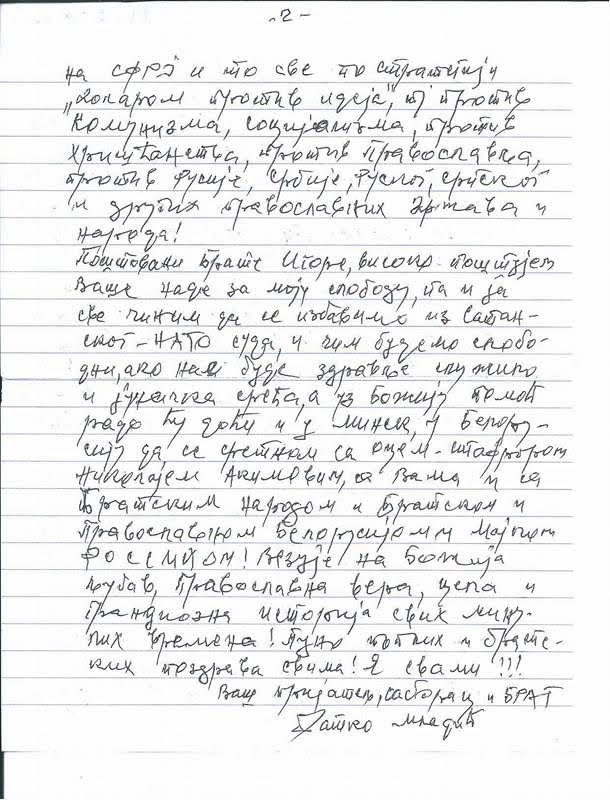 - 2 -
на СФРЈ и то све по стратегији
„Доларом против идеја", тј против
Комунизма, социјализма, против
Хришћанства, против Православља,
против Русије, Србије, Руског, српског
и других православних држава и
народа!
Поштовани брате Игоре, високо поштујем
Ваше наде за моју слободу, па и ја
све чиним да се избавимо из Сатан-
ског-НАТО суда, и чим будемо слобо-
дни, ако нас буде здравље служило
и јуначка срећа, а уз Божију помоћ
радо ћу доћи и у Минск, у Белору-
сију да се сретнем са оцем-
Николајем са Вама и са
Братским народом и Братском и
Православном Белорусијом и Мајком
РОССИЈОМ! Везује на Божија
љубав, Православна вера, цела и
грандиозна историја свих мину-
лих времена! Пуно топлих и братс-
ких поздрава свима! Я свами!!!
Ваш пријатељ, саборац и БРАТ
Ратко Младић